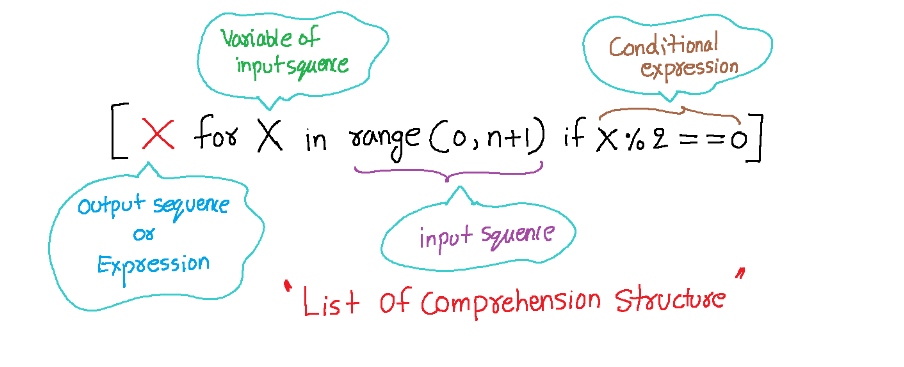 Variable of
input squence
Conditional
expression
[ X for X in range (0, n+1) if X % 2 == 0]
output sequence
or
Expression
input squence
"List Of Comprehension Structure"